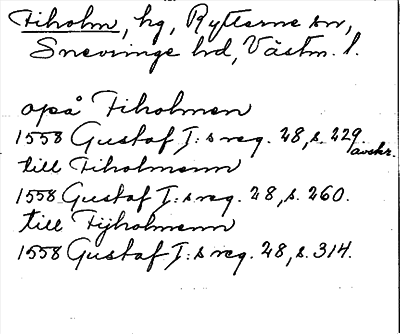 Tiholm, hg, Rytterne sn,
Snevringe hd, Västm. l.
opå Tiholmen
1558 Gustaf I:s reg. 28, s. 229.
avskr.
till Tiholmenn
1558 Gustaf I:s reg. 28, s. 260.
till Tijholmenn
1558 Gustaf I:s reg. 28, s. 314.